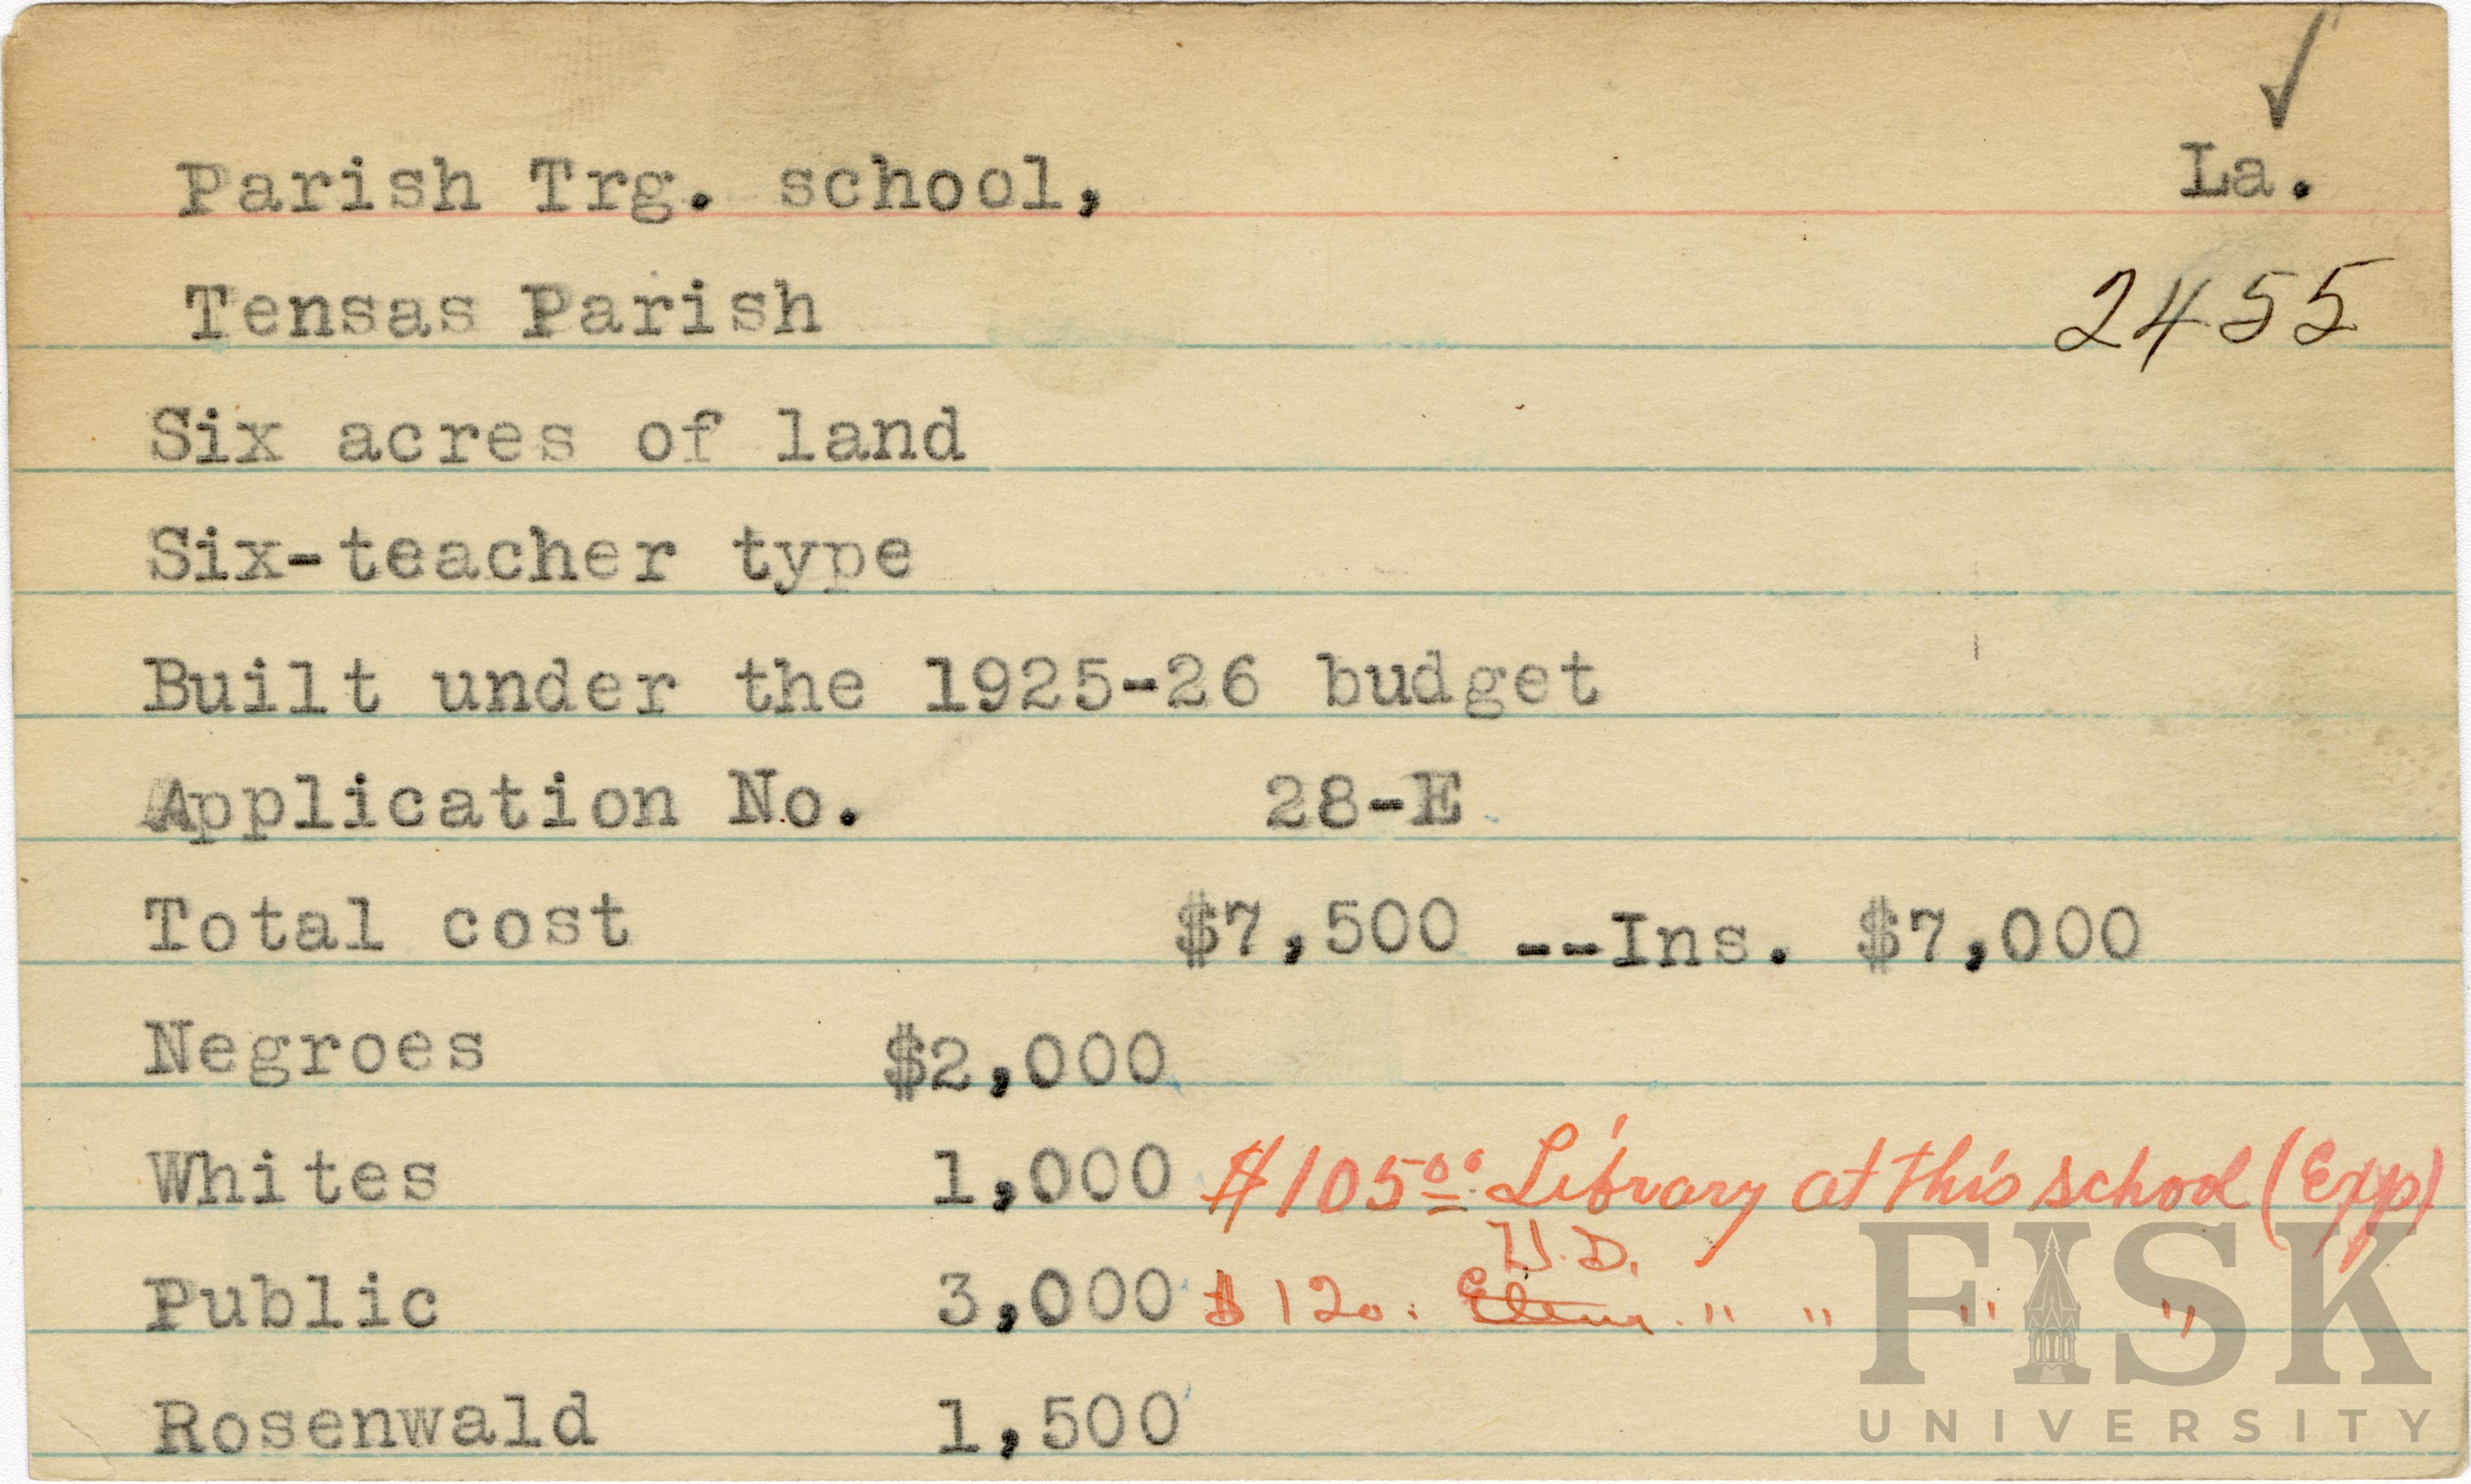 Parish Trg. school, La.
Tensas Parish 2455
Six acres of land
Six-teacher type
Built under the 1925-26 budget
Application No. 28-E
Total cost $7,500 --Ins. $7,000
Negroes $2,000
Whites 1,000 $105.00 Library at this school (Exp)
Public 3,000 $120. H.S. Elem. " " " "
Rosenwald 1,500
FISK
UNIVERSITY